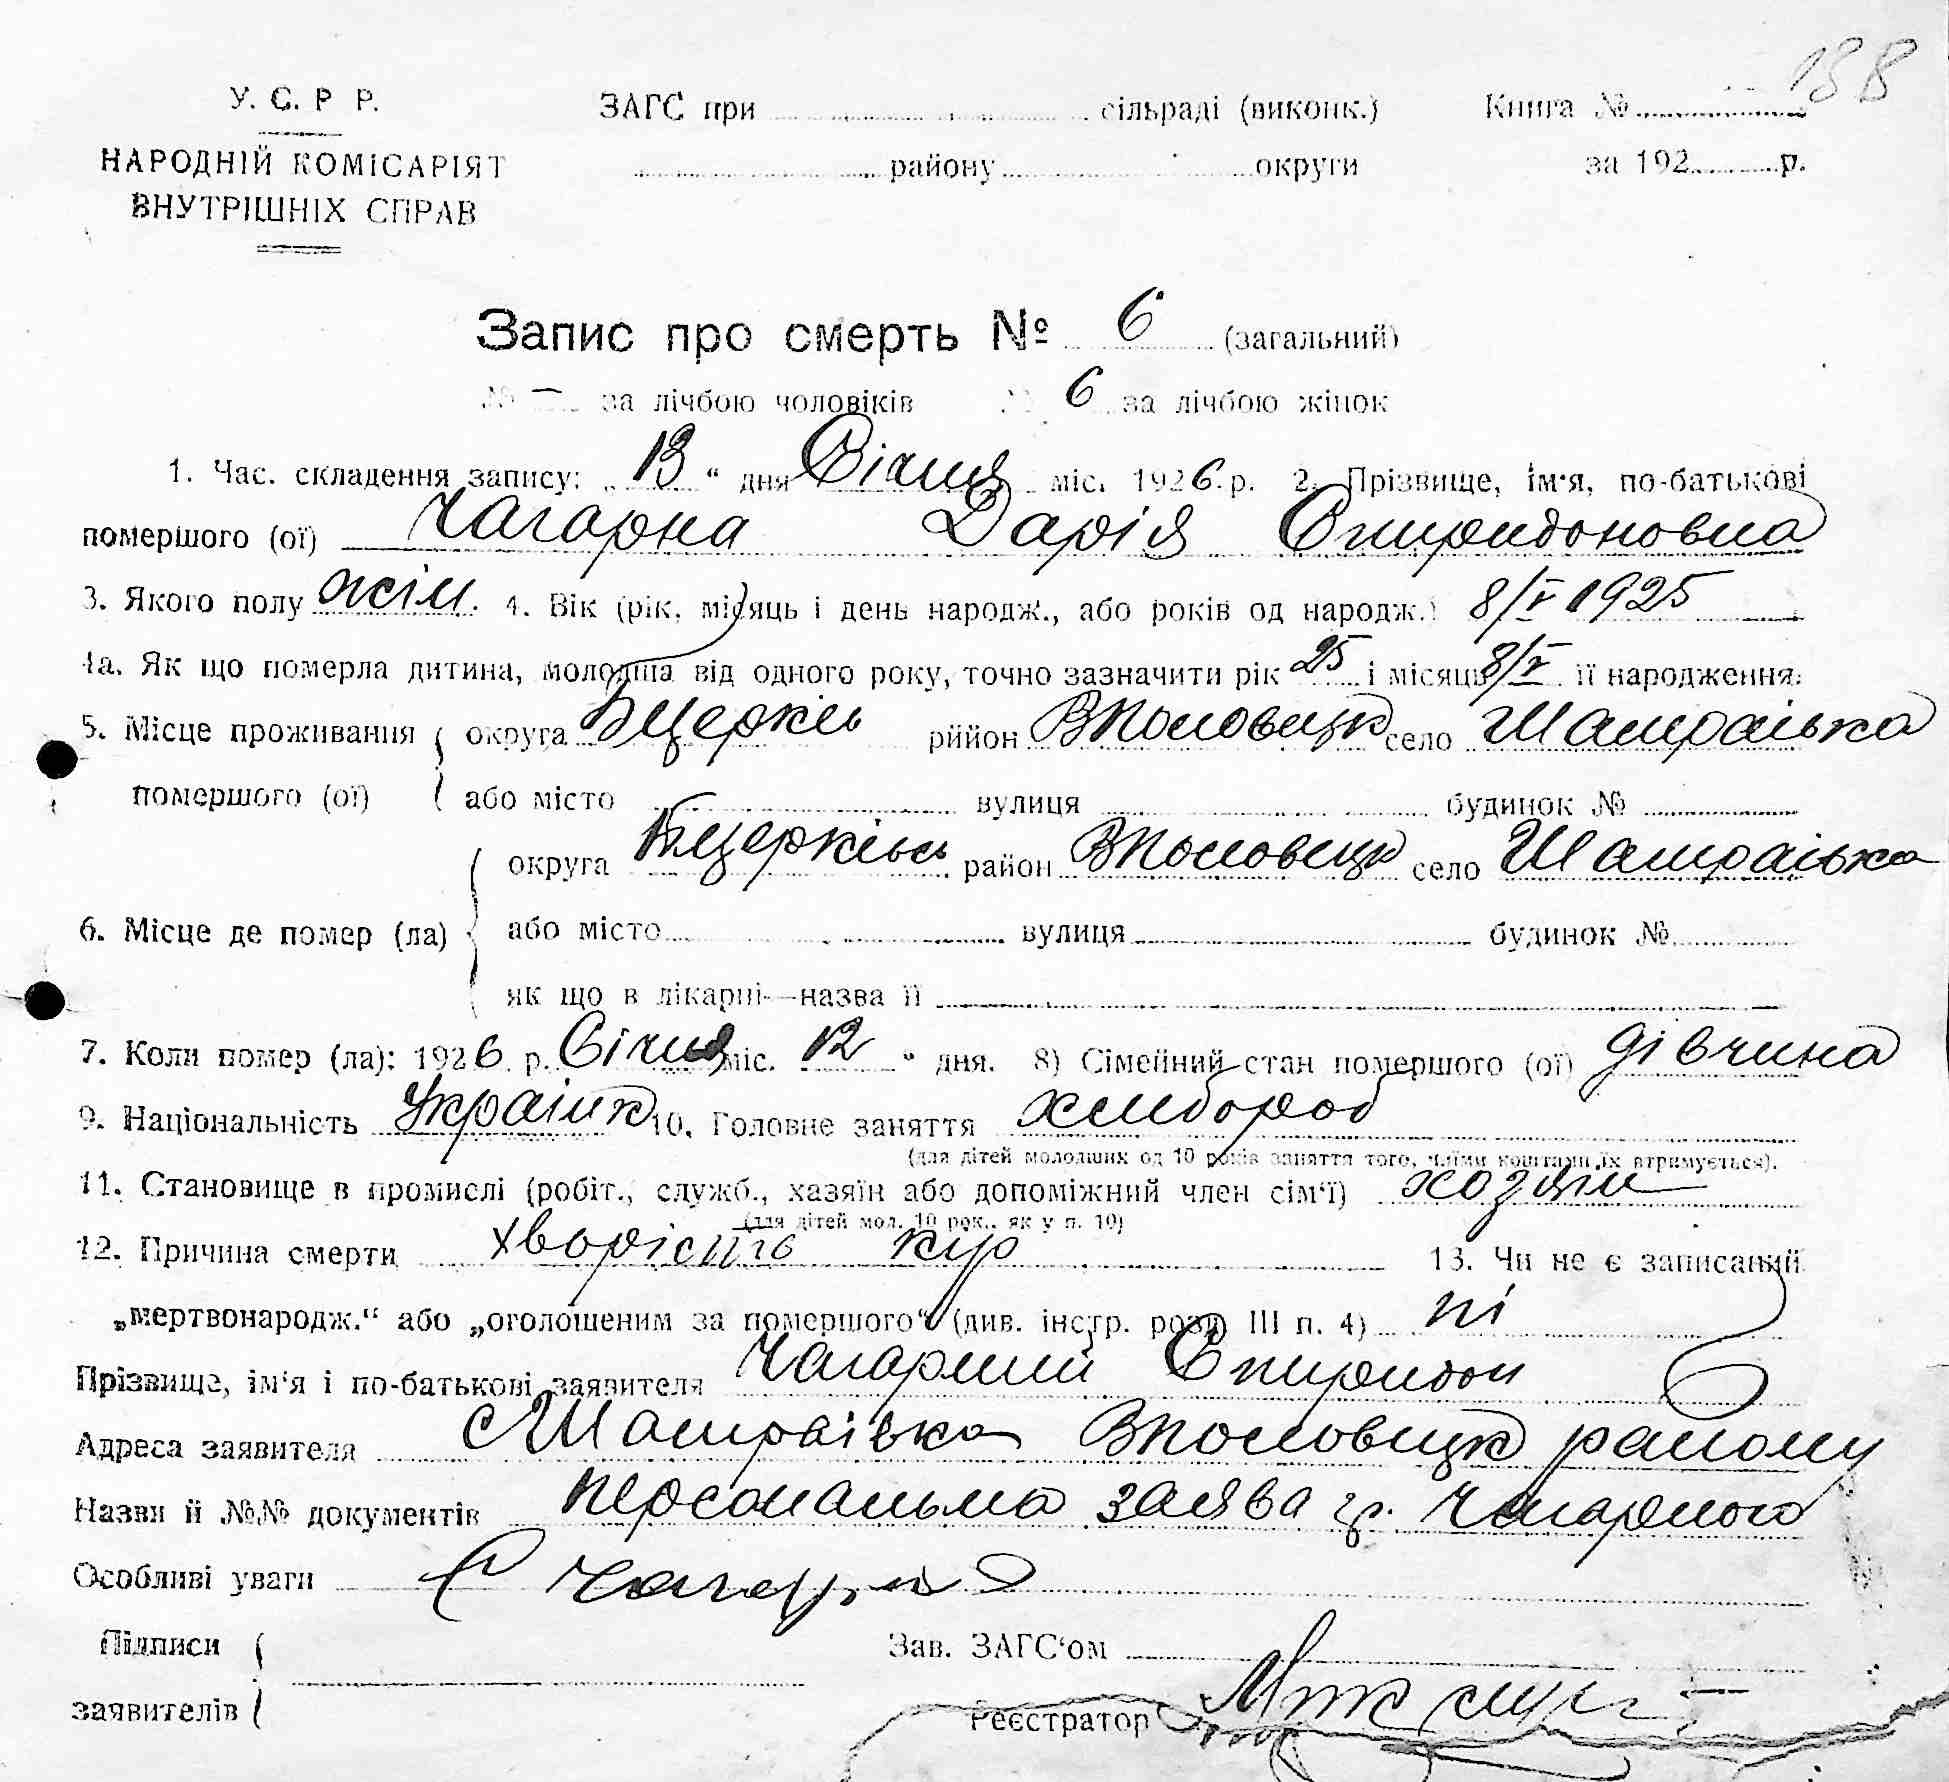 188
У. С. Р Р. ЗАГС при сільраді (виконк.) Книга №
НАРОДНІЙ КОМІСАРІЯТ району округи за 192 р.
ВНУТРІШНІХ СПРАВ
Запис про смерть № 6 (загальний)
№ — за лічбою чоловіків № 6 за лічбою жінок
1. Час. складення запису: „13“ дня Січня міс. 1926 р. 2. Прізвище, ім'я, по-батькові
помершого (ої) Чагарна Дарія Спиридоновна
3. Якого полу жін. 4. Вік (рік, місяць і день народж., або років од народж.) 8/V 1925
4а. Як що померла дитина, молодша від одного року, точно зазначити рік 25 і місяць 8/V її народження.
5. Місце проживання округа БЦерків рийон ВПоловецьк село Шамраївка
помершого (ої) або місто вулиця будинок №
округа БЦерківсь район ВПоловецьк село Шамраївка
6. Місце де помер (ла) або місто вулиця будинок №
як що в лікарні—назва її
7. Коли помер (ла): 1926 р. Січня міс. 12 “ дня. 8) Сімейний стан помершого (ої) дівчина
9. Національність Україн 10. Головне заняття хлибороб
(для дітей молодших од 10 років заняття того, чиїми коштами їх втримується).
11. Становище в промислі (робіт., служб., хазяїн або допоміжний член сім'ї) хозяин
(для дітей мол. 10 рок., як у п. 10)
12. Причина смерти хворість кір 13. Чи не є записаний
„мертвонародж.“ або „оголошеним за помершого“ (див. інстр. розд. III п. 4) ні
Прізвище, ім'я і по-батькові заявителя Чагарний Спиридон
Адреса заявителя с Шамраівка ВПоловецьк району
Назви й №№ документів персональна заява гр. Чагарного
Особливі уваги С Чагарн
Підписи Зав. ЗАГС'ом
заявителів Реєстратор